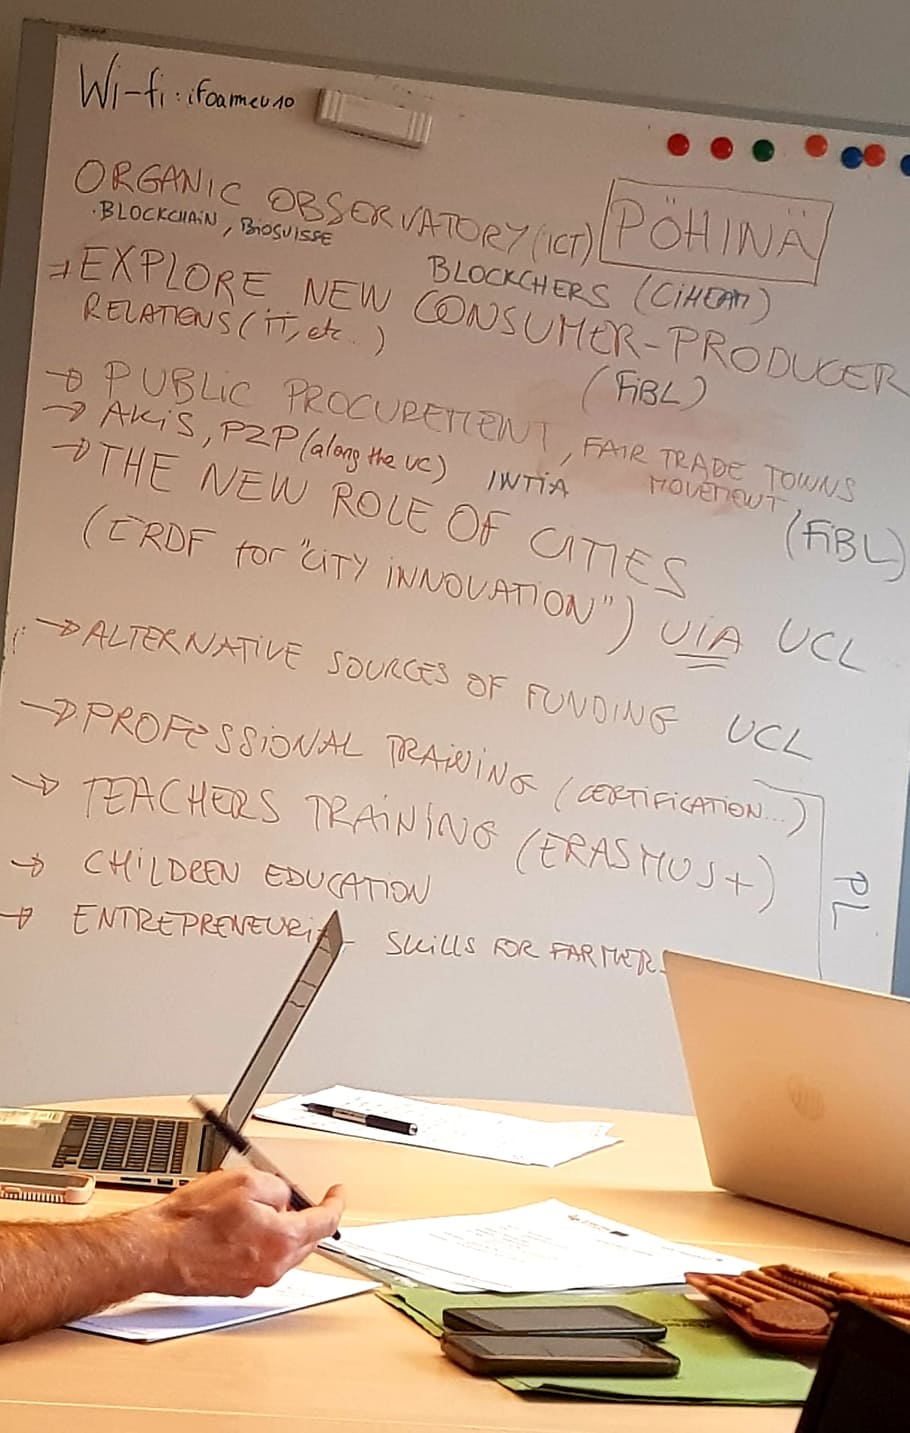 Wi-fi: iFoameu10
ORGANIC OBSERVATORY (ICT)
PÖHINÄ
· BLOCKCHAIN, BIOSUISSE
BLOCKCHERS (CIHEAM)
→ EXPLORE NEW CONSUMER-PRODUCER
RELATIONS (IT, etc..)
(FiBL)
→ PUBLIC PROCUREMENT, FAIR TRADE TOWNS
MOVEMENT
(FiBL)
→ AKIS, P2P (along the VC)
INTIA
→ THE NEW ROLE OF CITIES
(ERDF for "CITY INNOVATION") UIA UCL
→ ALTERNATIVE SOURCES OF FUNDING UCL
→ PROFESSIONAL TRAINING (CERTIFICATION...)
→ TEACHERS TRAINING (ERASMUS+)
PL
→ CHILDREN EDUCATION
→ ENTREPRENEURI SKILLS FOR FARMERS
hp